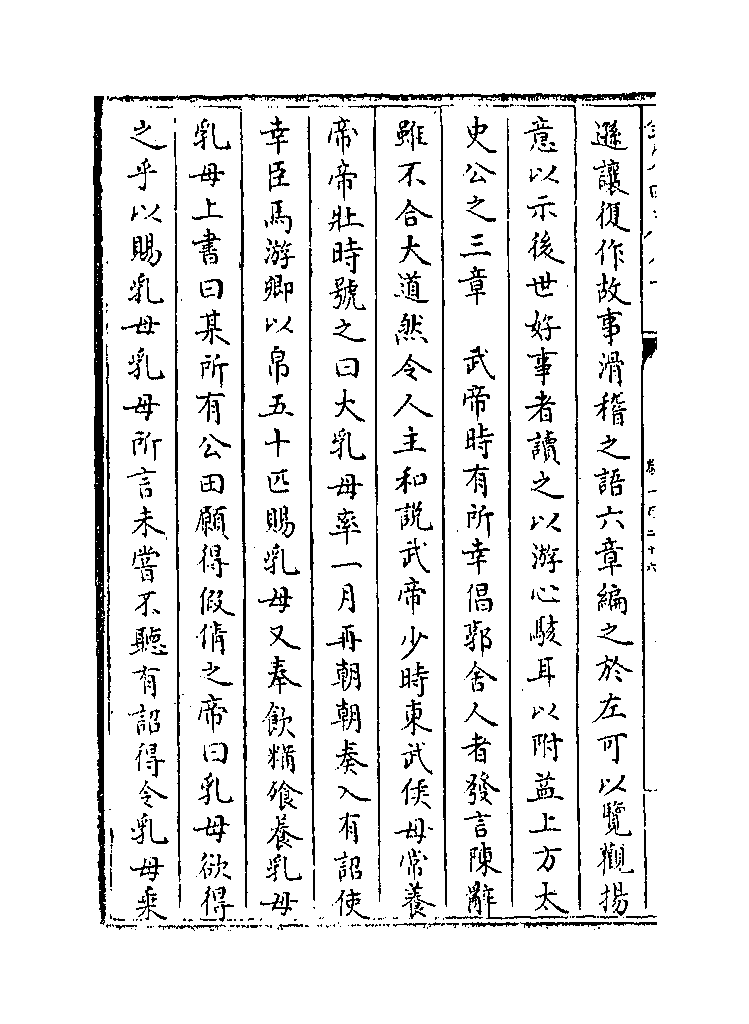 遜讓復作故事滑稽之語六章編之於左可以覽觀揚
意以示後世好事者讀之以游心駭耳以附益上方太
史公之三章　武帝時有所幸倡郭舍人者發言陳辭
雖不合大道然令人主和說武帝少時東武侯母常養
帝帝壯時號之曰大乳母率一月再朝朝奏入有詔使
幸臣馬游卿以帛五十匹賜乳母又奉飲糒飱養乳母
乳母上書曰某所有公田願得假倩之帝曰乳母欲得
之乎以賜乳母乳母所言未嘗不聽有詔得令乳母乘
卷一百二十六